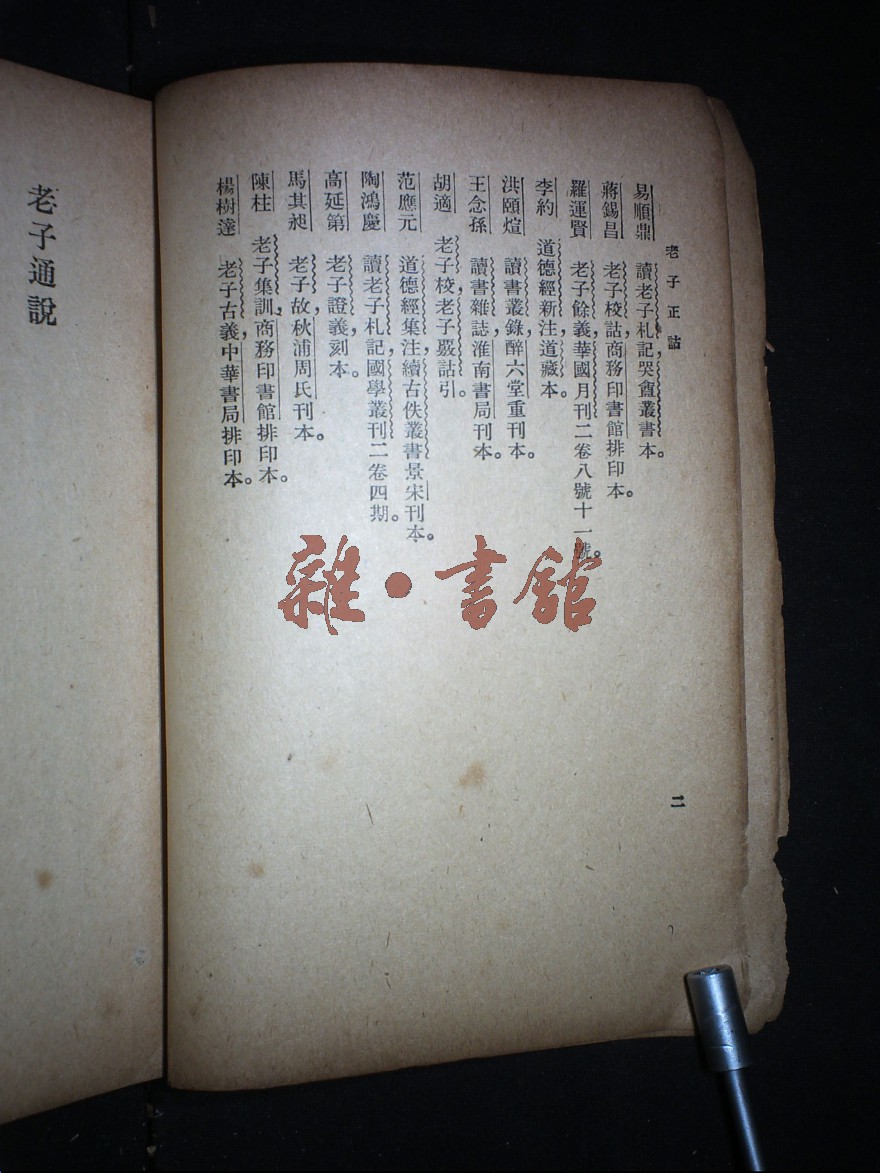 老子正詁
易順鼎　讀老子札記，哭盦叢書本。
蔣錫昌　老子校詁，商務印書館排印本。
羅運賢　老子餘義，華國月刊二卷八號十一號。
李約　道德經新注，道藏本。
洪頤煊　讀書叢錄，醉六堂重刊本。
王念孫　讀書雜誌，淮南書局刊本。
胡適　老子校，老子覈詁引。
范應元　道德經集注，續古佚叢書景宋刊本。
陶鴻慶　讀老子札記，國學叢刊二卷四期。
高延第　老子證義，刻本。
馬其昶　老子故，秋浦周氏刊本。
陳柱　老子集訓，商務印書館排印本。
楊樹達　老子古義，中華書局排印本。
二
老子通說
雜•書館